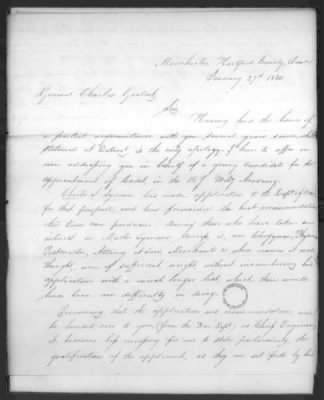 Manchester, Hartford County, Conn
January 27th 18
General Charles Gratiot
Sir
Having had the honor of
a personal acquaintance with you several years since, while
stationed at Detroit is the only apology I have to offer in
now addressing you in behalf of a young Candidate for the
appointment of Cadet, in the U.S. Mility Academy.
Charles S. Lyman has made application to the Dept of War
for that purpose, and has forwarded the best recommendations
this Town can produce. Among those who have taken an
interest in Master Lyman's success, is our Clergyman, Physician
Postmaster, Attorney at Law, Merchants &c whose names it was
thought, were of sufficient weight without incumbering his
application with a usual longer list, which there would
have been no difficulty in doing.
Presuming that the application and recommendations will
be handed over to you (from the War Dept) as Chief Engineer
it becomes less necessary for me to state particularly, the
qualification of the applicant, as they are set forth by his